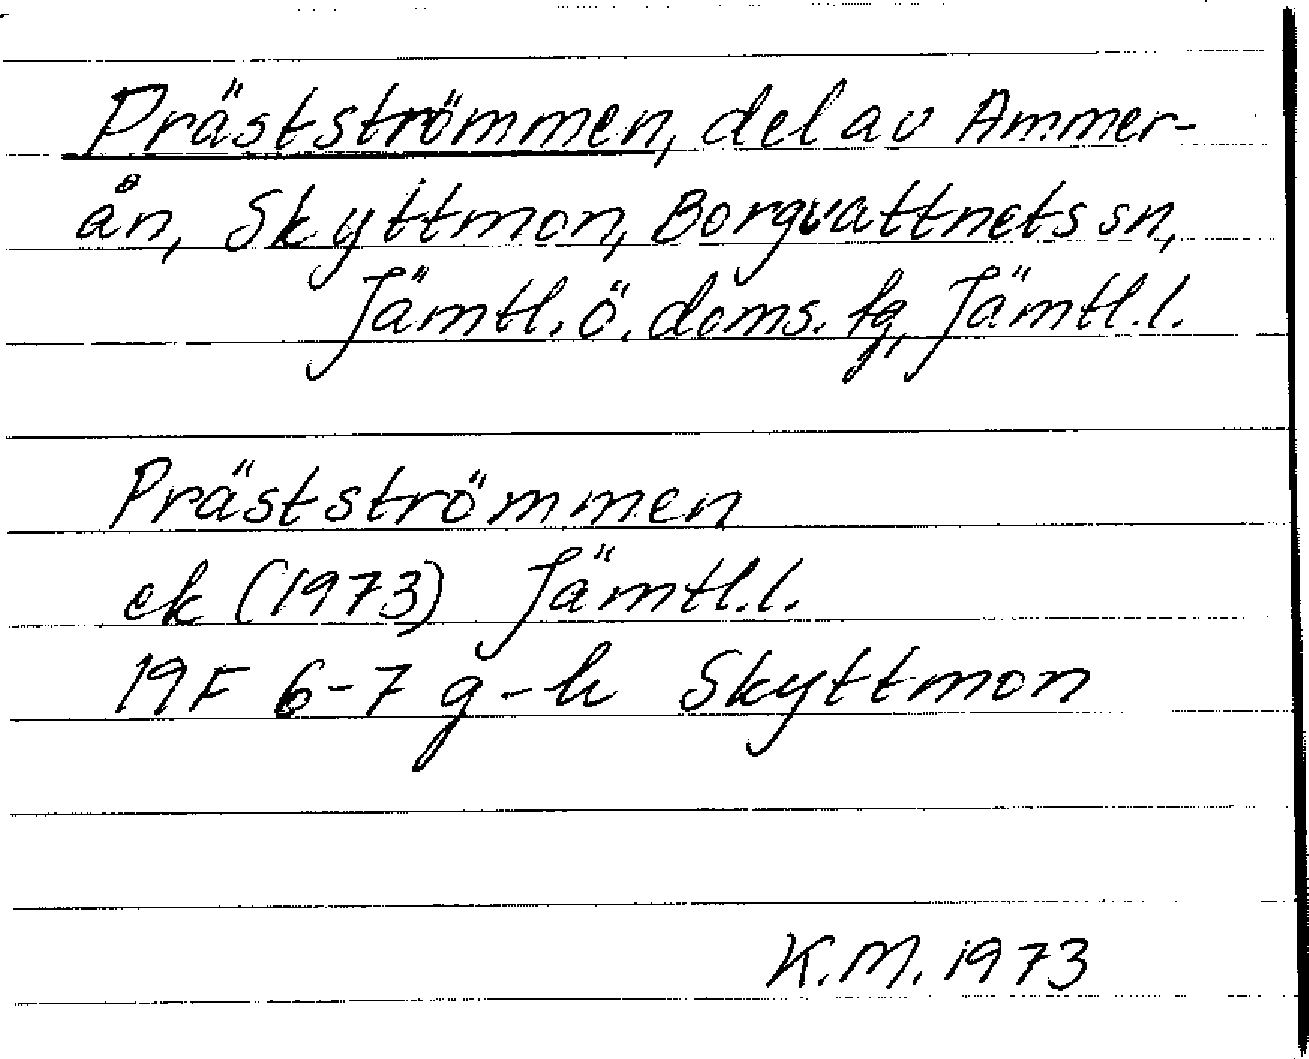 Prästströmmen, del av Ammer-
ån, Skyttmon, Borgvattnets sn,
Jämtl. ö. doms. tg, Jämtl. l.
Prästströmmen
ek (1973) Jämtl. l.
19F 6-7 g-h Skyttmon
K.M. 1973